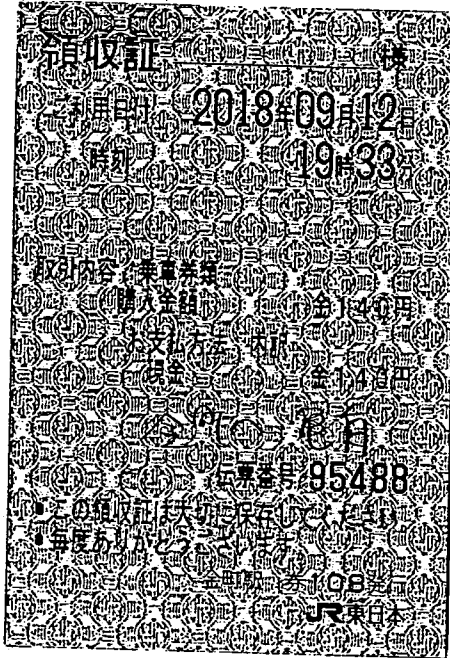 領収証 様
ご利用日付 2018年09月12日
時刻 19時33分
取引内容 乗車券類
購入金額 金140円
お支払方法 内訳
現金 金140円
伝票番号 95488
この領収証は大切に保存してください
毎度ありがとうございます
金町駅 券108発行
JR東日本